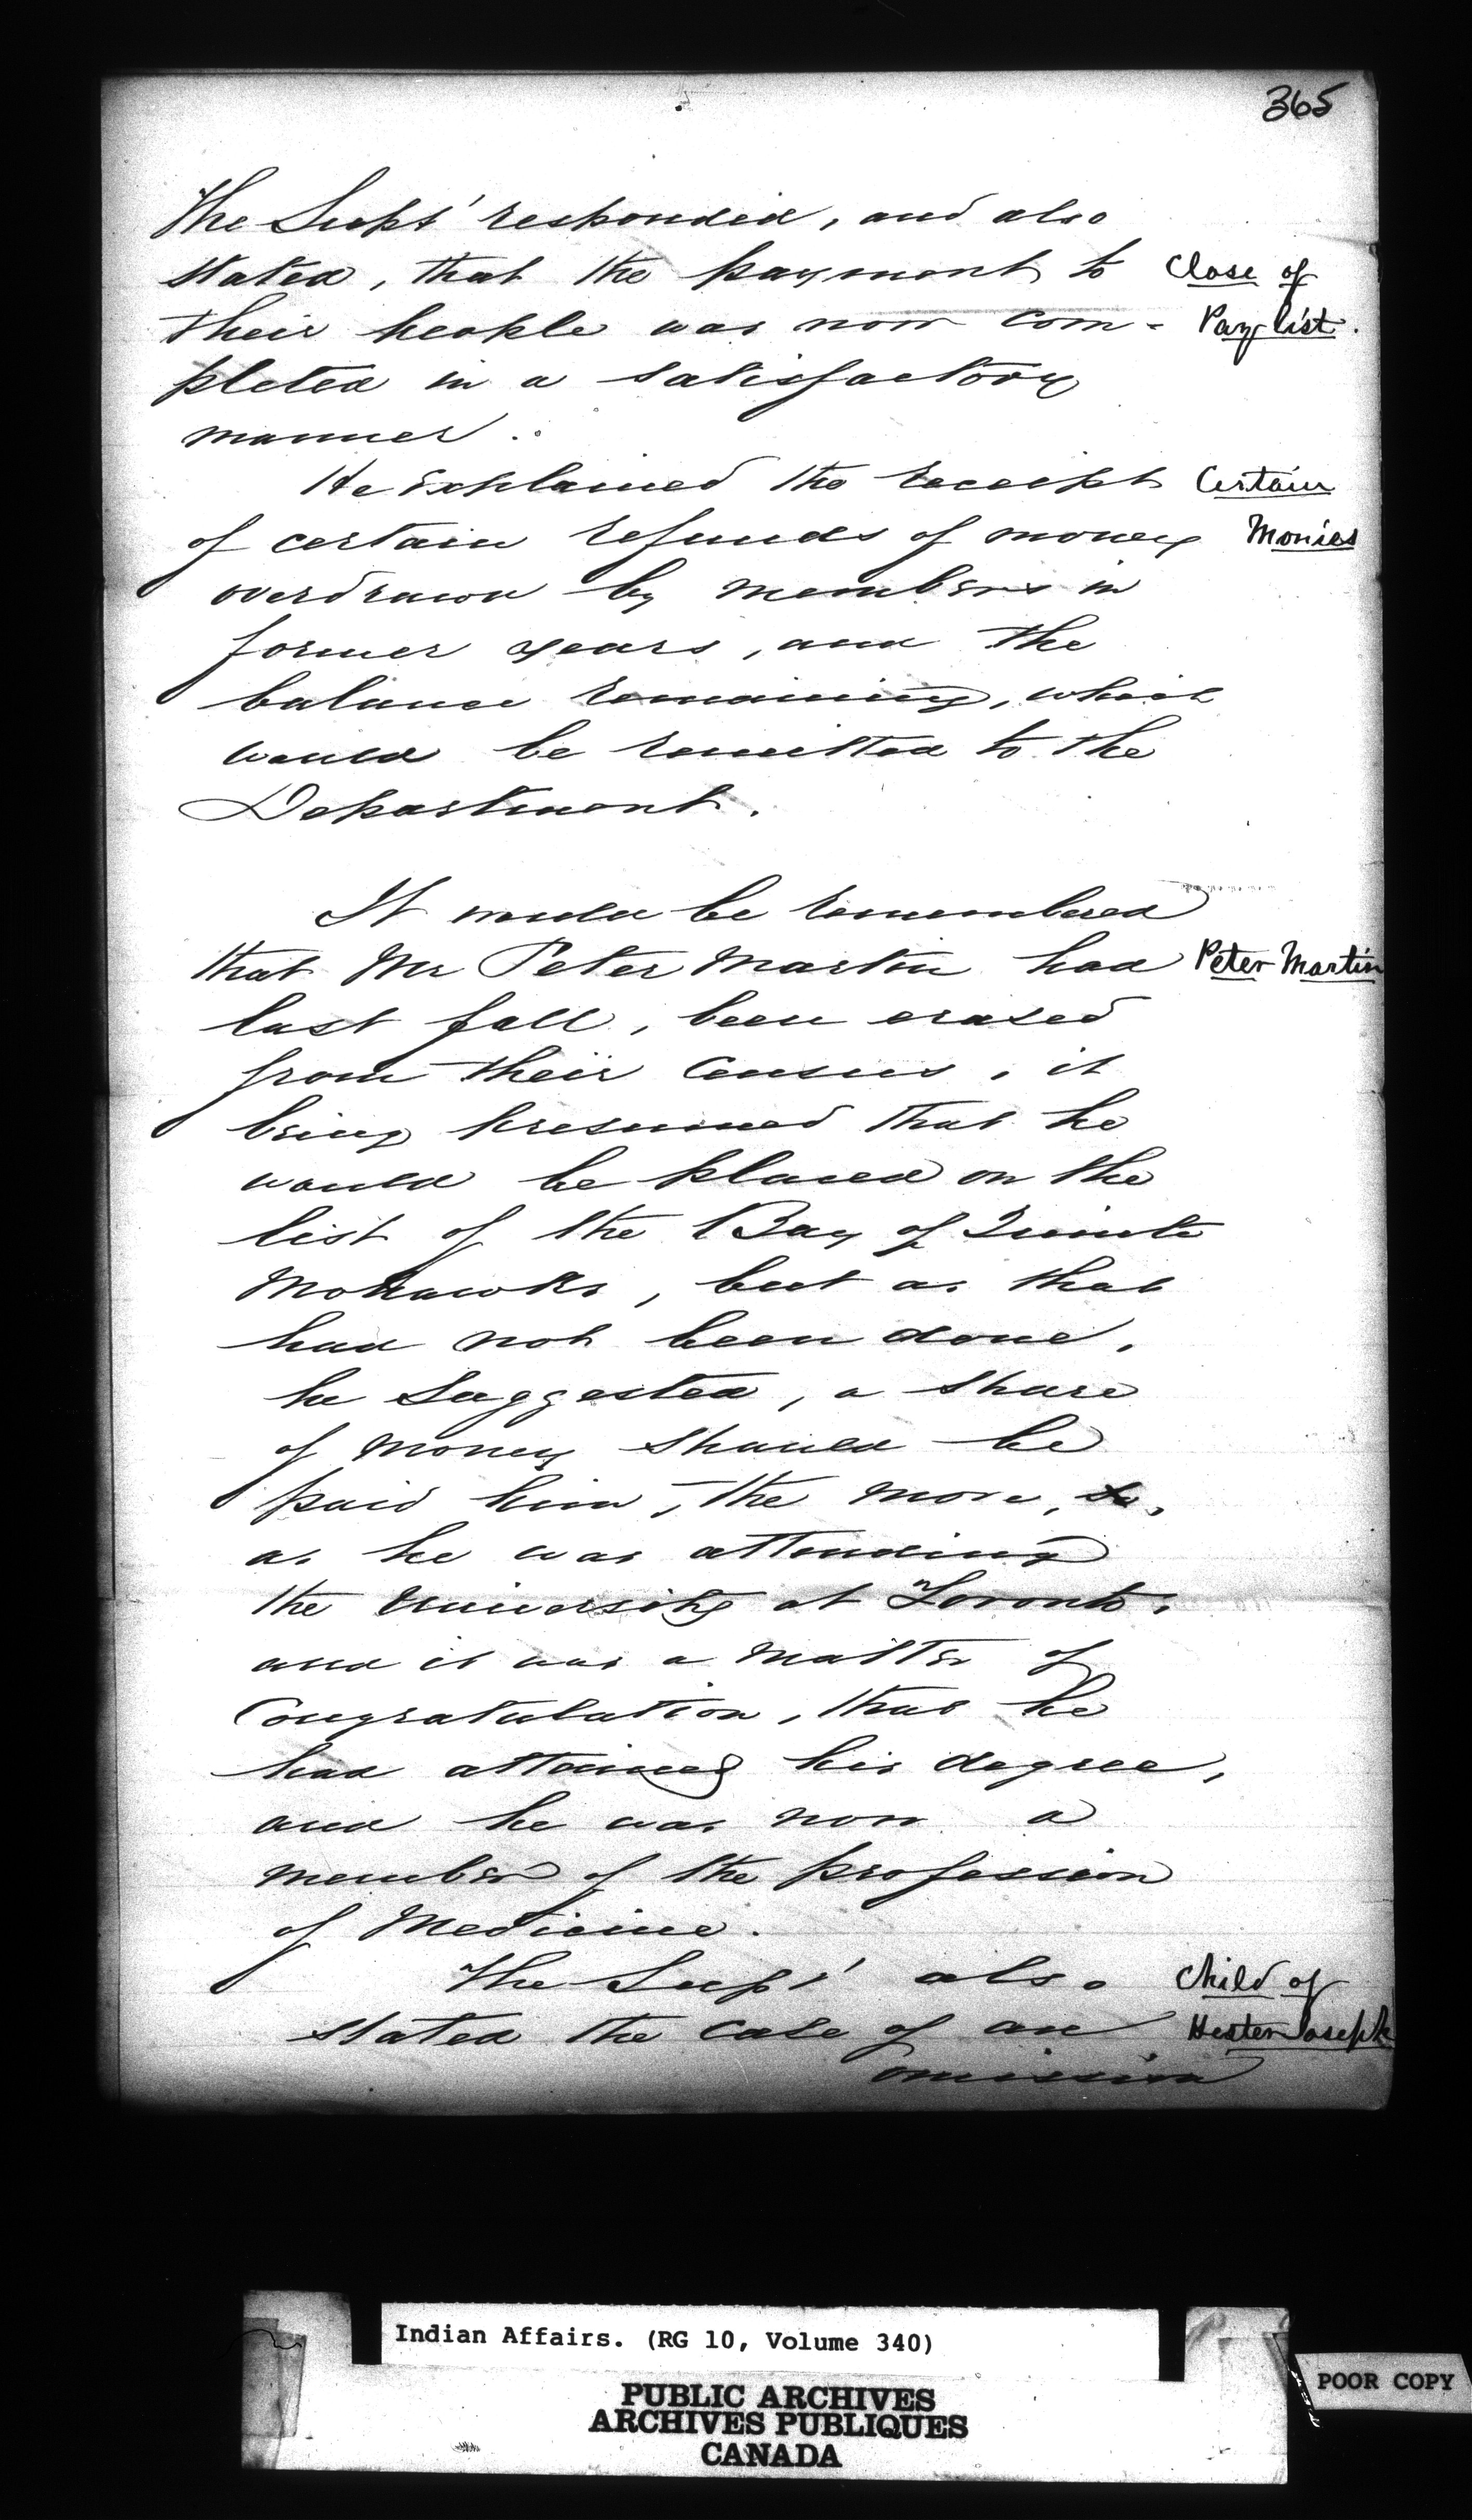 365
The Supt' responded, and also
stated, that the payment to
Close of
their people was now com-
Pay list.
pleted in a satisfactory
manner.
He explained the receipt
Certain
of certain refunds of money
Monies
overdrawn by members in
former years, and the
balance remaining, which
would be remitted to the
Department.
It would be remembered
that Mr Peter Martin had
Peter Martin
last fall, been erased
from their Census, it
being presumed that he
would be placed on the
list of the Bay of Quinte
Mohawks, but as that
had not been done,
he suggested, a share
of money should be
paid him, the more, so,
as he was attending
the University at Toronto,
and it was a matter of
Congratulation, that he
had attained his degree,
and he was now a
member of the profession
of Medicine.
The Supt' also
Child of
stated the case of an
Hester Joseph
omission
Indian Affairs. (RG 10, Volume 340)
POOR COPY
PUBLIC ARCHIVES
ARCHIVES PUBLIQUES
CANADA